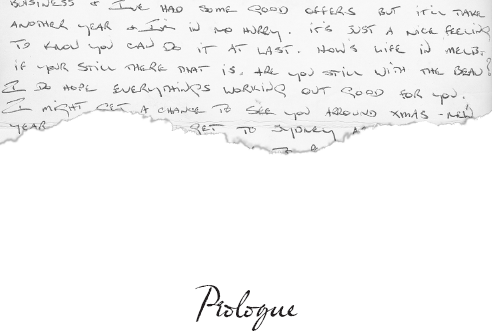 BUSINESS & I'VE HAD SOME GOOD OFFERS BUT IT'LL TAKE
ANOTHER YEAR & I'M IN NO HURRY. IT'S JUST A NICE FEELING
TO KNOW YOU CAN DO IT AT LAST. HOW'S LIFE IN MELB.
IF YOUR STILL THERE THAT IS, ARE YOU STILL WITH THE BEAU?
I DO HOPE EVERYTHING'S WORKING OUT GOOD FOR YOU.
I MIGHT GET A CHANCE TO SEE YOU ARROUND XMAS - NEW
YEAR GET TO SYDNEY
Prologue